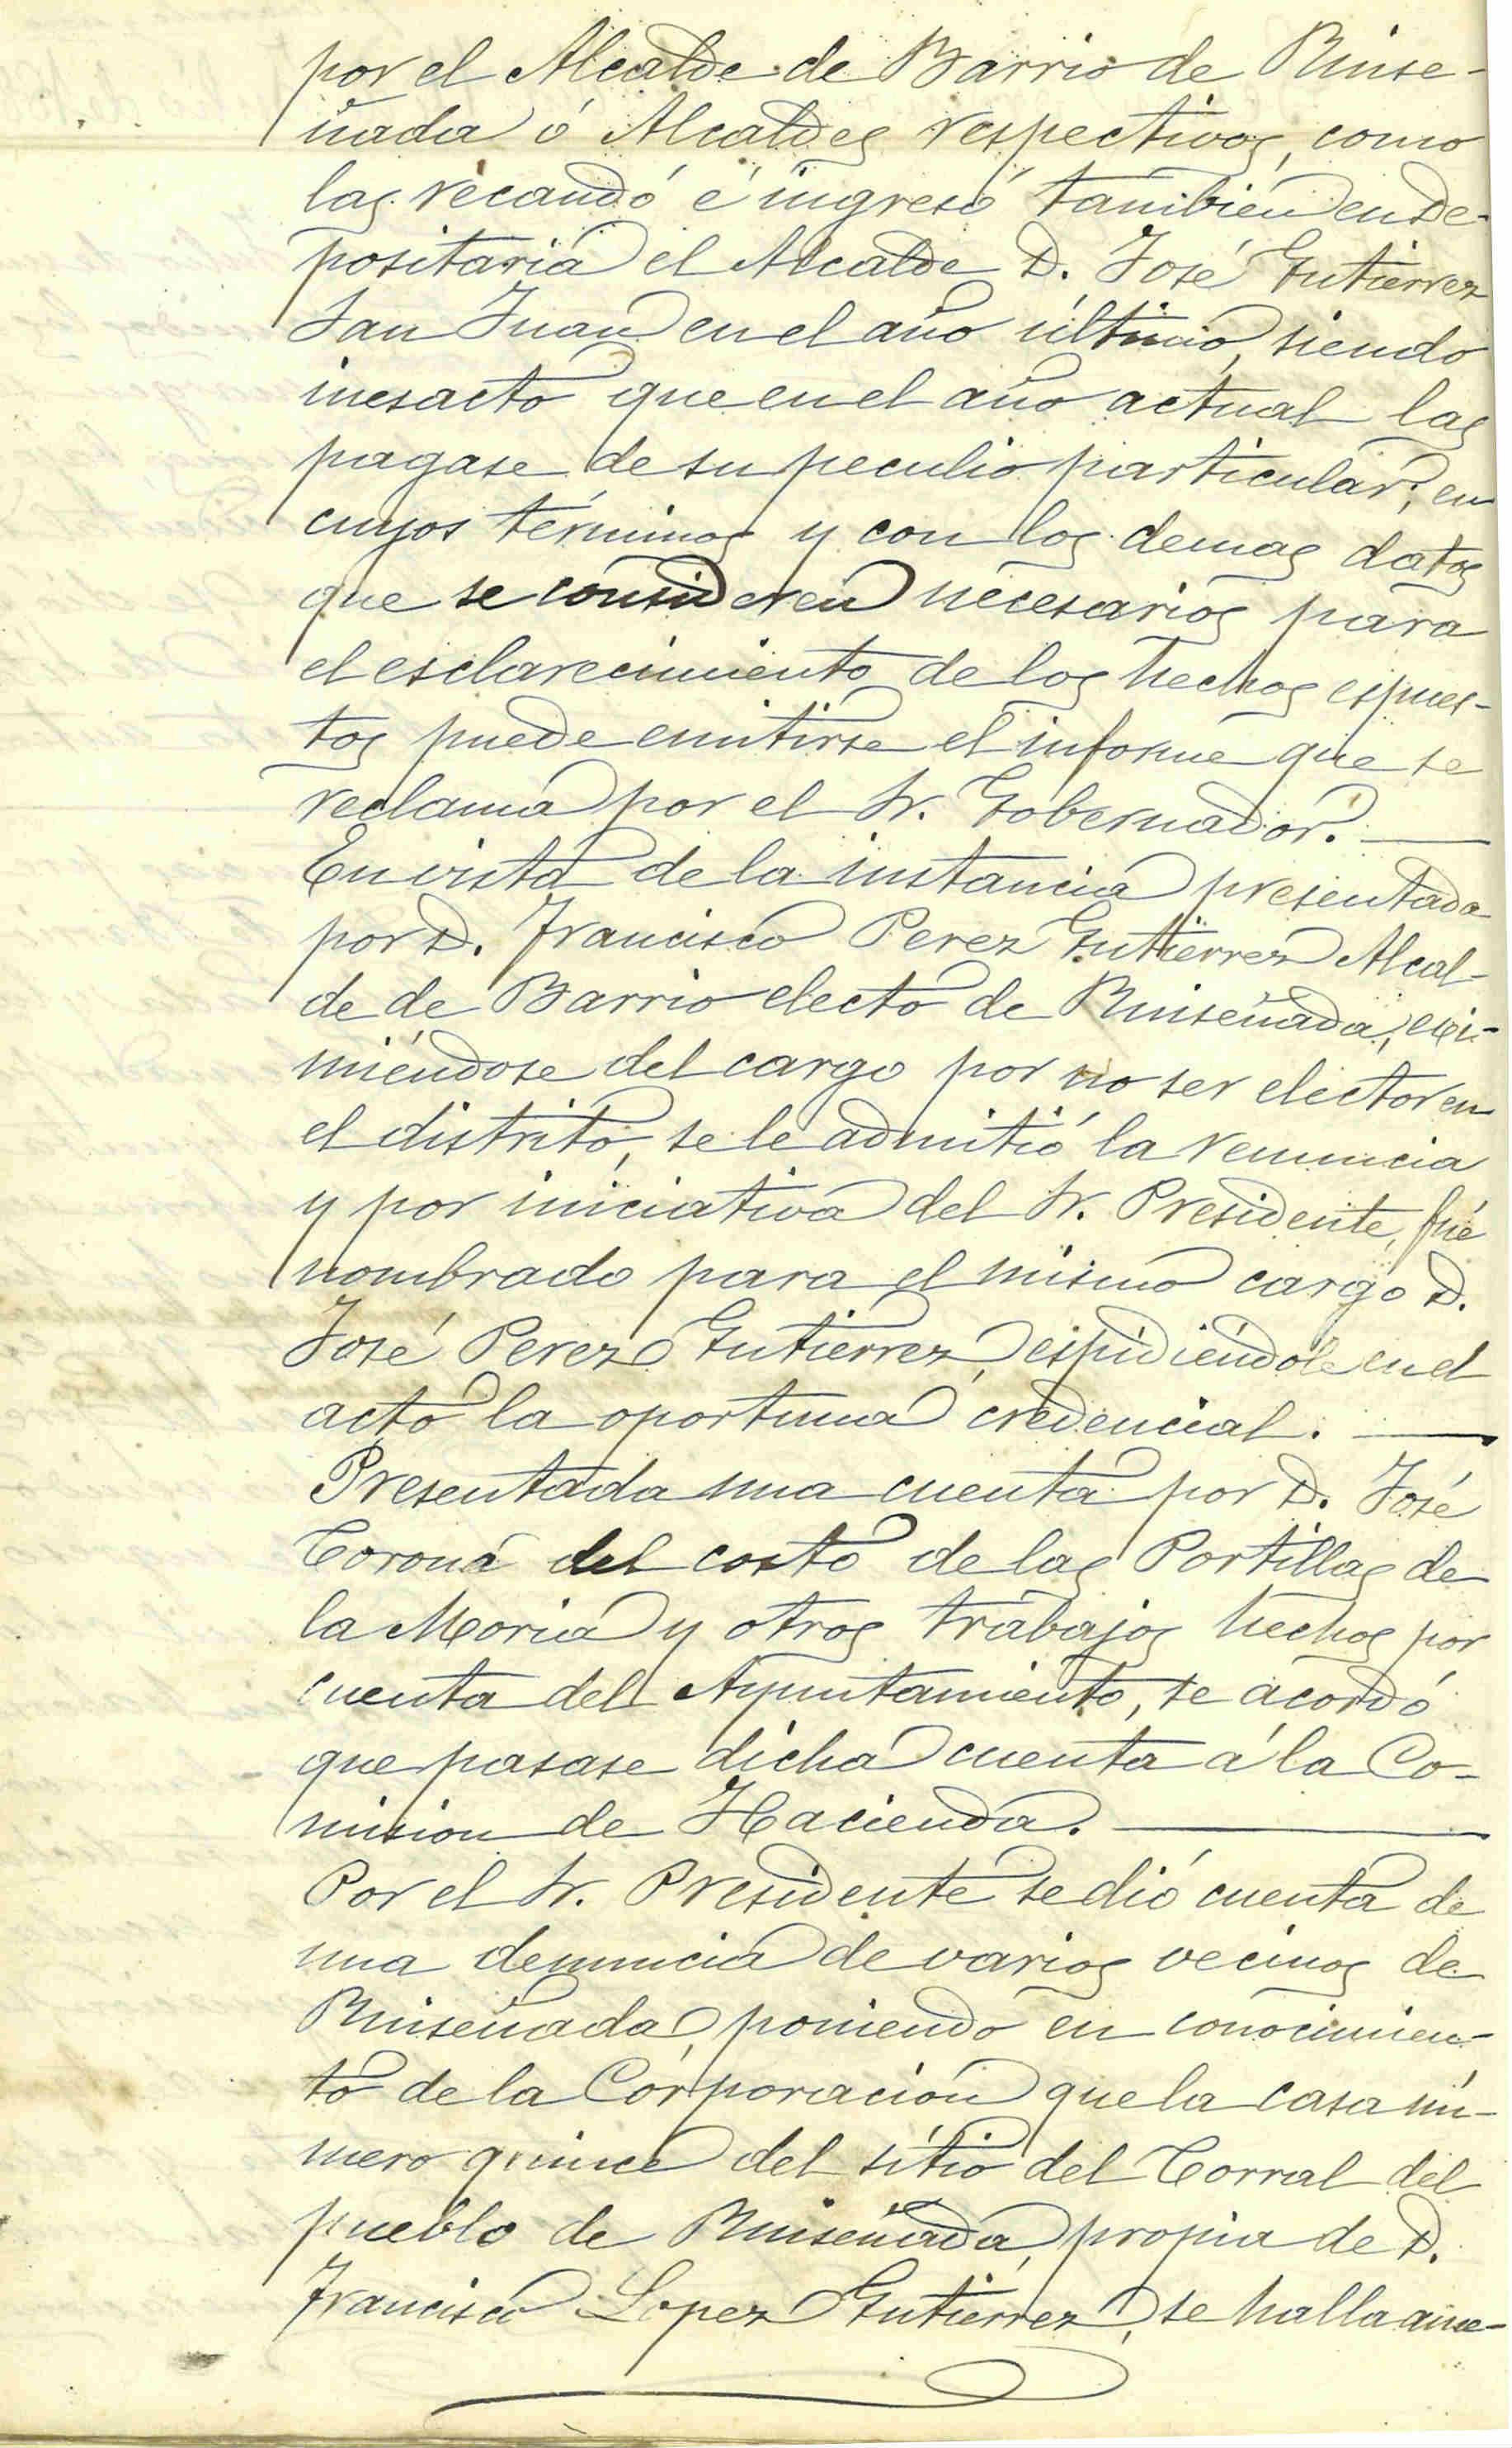 por el Alcalde de Barrio de Ruise-
ñada ó Alcaldes respectivos, como
las recaudó é ingresó tambien en de-
positaria el Alcalde D. José Gutierrez
San Juan en el año último, siendo
inesacto que en el año actual las
pagase de su peculio particular; en
cuyos términos y con los demas datos
que se consideren necesarios para
el esclarecimiento de los hechos espues-
tos puede emitirse el informe que se
reclama por el Sr. Gobernador.
En vista de la instancia presentada
por D. Francisco Perez Gutierrez Alcal-
de de Barrio electo de Ruiseñada, exi-
miéndose del cargo por no ser elector en
el distrito, se le admitió la renuncia
y por iniciativa del Sr. Presidente, fué
nombrado para el mismo cargo D.
José Perez Gutierrez, espidiéndole en el
acto la oportuna credencial.
Presentada una cuenta por D. José
Corona del costo de las Portillas de
la Moria y otros trabajos hechos por
cuenta del Ayuntamiento, se acordó
que pasase dicha cuenta á la Co-
mision de Hacienda.
Por el Sr. Presidente se dió cuenta de
una denuncia de varios vecinos de
Ruiseñada, poniendo en conocimien-
to de la Corporacion que la casa nú-
mero quince del sitio del Corral del
pueblo de Ruiseñada, propia de D.
Francisco Lopez Gutierrez, se halla ame-